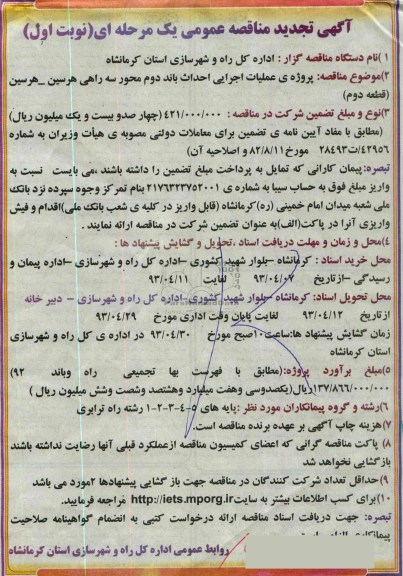 آگهی تجدید مناقصه عمومی یک مرحله ای(نوبت اول)
۱)نام دستگاه مناقصه گزار : اداره کل راه و شهرسازی استان کرمانشاه
۲)موضوع مناقصه: پروژه ی عملیات اجرایی احداث باند دوم محور سه راهی هرسین _هرسین
(قطعه دوم)
۳)نوع و مبلغ تضمین شرکت در مناقصه : ۴۲۱/۰۰۰/۰۰۰ (چهار صدو بیست و یک میلیون ریال)
(مطابق با مفاد آیین نامه ی تضمین برای معاملات دولتی مصوبه ی هیأت وزیران به شماره
۴۲۹۵۶/ت۲۸۴۹۳ مورخ۸۲/۸/۱۱ و اصلاحیه آن)
تبصره:پیمان کارانی که تمایل به پرداخت مبلغ تضمین را داشته باشند ،می بایست نسبت به
واریز مبلغ فوق به حساب سیبا به شماره ی ۲۱۷۶۴۵۲۰۰۱ بنام تمرکز وجوه سپرده نزد بانک
ملی شعبه میدان امام خمینی (ره)کرمانشاه (قابل واریز در کلیه ی شعب بانک ملی)اقدام و فیش
واریزی آنرا در پاکت(الف)به عنوان تضمین شرکت در مناقصه ارائه نمایند .
۴)محل و زمان و مهلت دریافت اسناد ،تحویل و گشایش پیشنهاد ها :
محل خرید اسناد : کرمانشاه –بلوار شهید کشوری –اداره کل راه و شهرسازی –اداره پیمان و
رسیدگی –ازتاریخ ۹۳/۰۴/۰۷ لغایت ۹۳/۰۴/۱۱
محل تحویل اسناد: کرمانشاه –بلوار شهید کشوری–اداره کل راه و شهرسازی – دبیر خانه
ازتاریخ ۹۳/۰۴/۱۲ لغایت پایان وقت اداری مورخ ۹۳/۰۴/۲۹
زمان گشایش پیشنهاد ها:ساعت۱۰صبح مورخ ۹۳/۰۴/۳۰ در اداره ی کل راه و شهرسازی
استان کرمانشاه
۵)مبلغ برآورد پروژه:(مطابق با فهرست بها تجمیعی راه وباند ۹۲)
۱۳۷/۸۶۶/۰۰۰/۰۰۰ریال(یکصدوسی وهفت میلیارد وهشتصد وشصت وشش میلیون ریال )
۶)رشته و گروه پیمانکاران مورد نظر :پایه های ۵-۴-۳-۲-۱ رشته راه ترابری
۷)هزینه چاپ آگهی بر عهده برنده مناقصه است.
۸) پاکت مناقصه گرانی که اعضای کمیسیون مناقصه ازعملکرد قبلی آنها رضایت نداشته باشند
بازگشایی نخواهد شد
۹)حداقل تعداد شرکت کنندگان در مناقصه جهت باز گشایی پیشنهادها ۲مورد می باشد
۱۰)برای کسب اطلاعات بیشتر به سایت http://iets.mporg.ir مراجعه فرمایید.
تبصره: جهت دریافت اسناد مناقصه ارائه درخواست کتبی به انضمام گواهینامه صلاحیت
روابط عمومی اداره کل راه و شهرسازی استان کرمانشاه